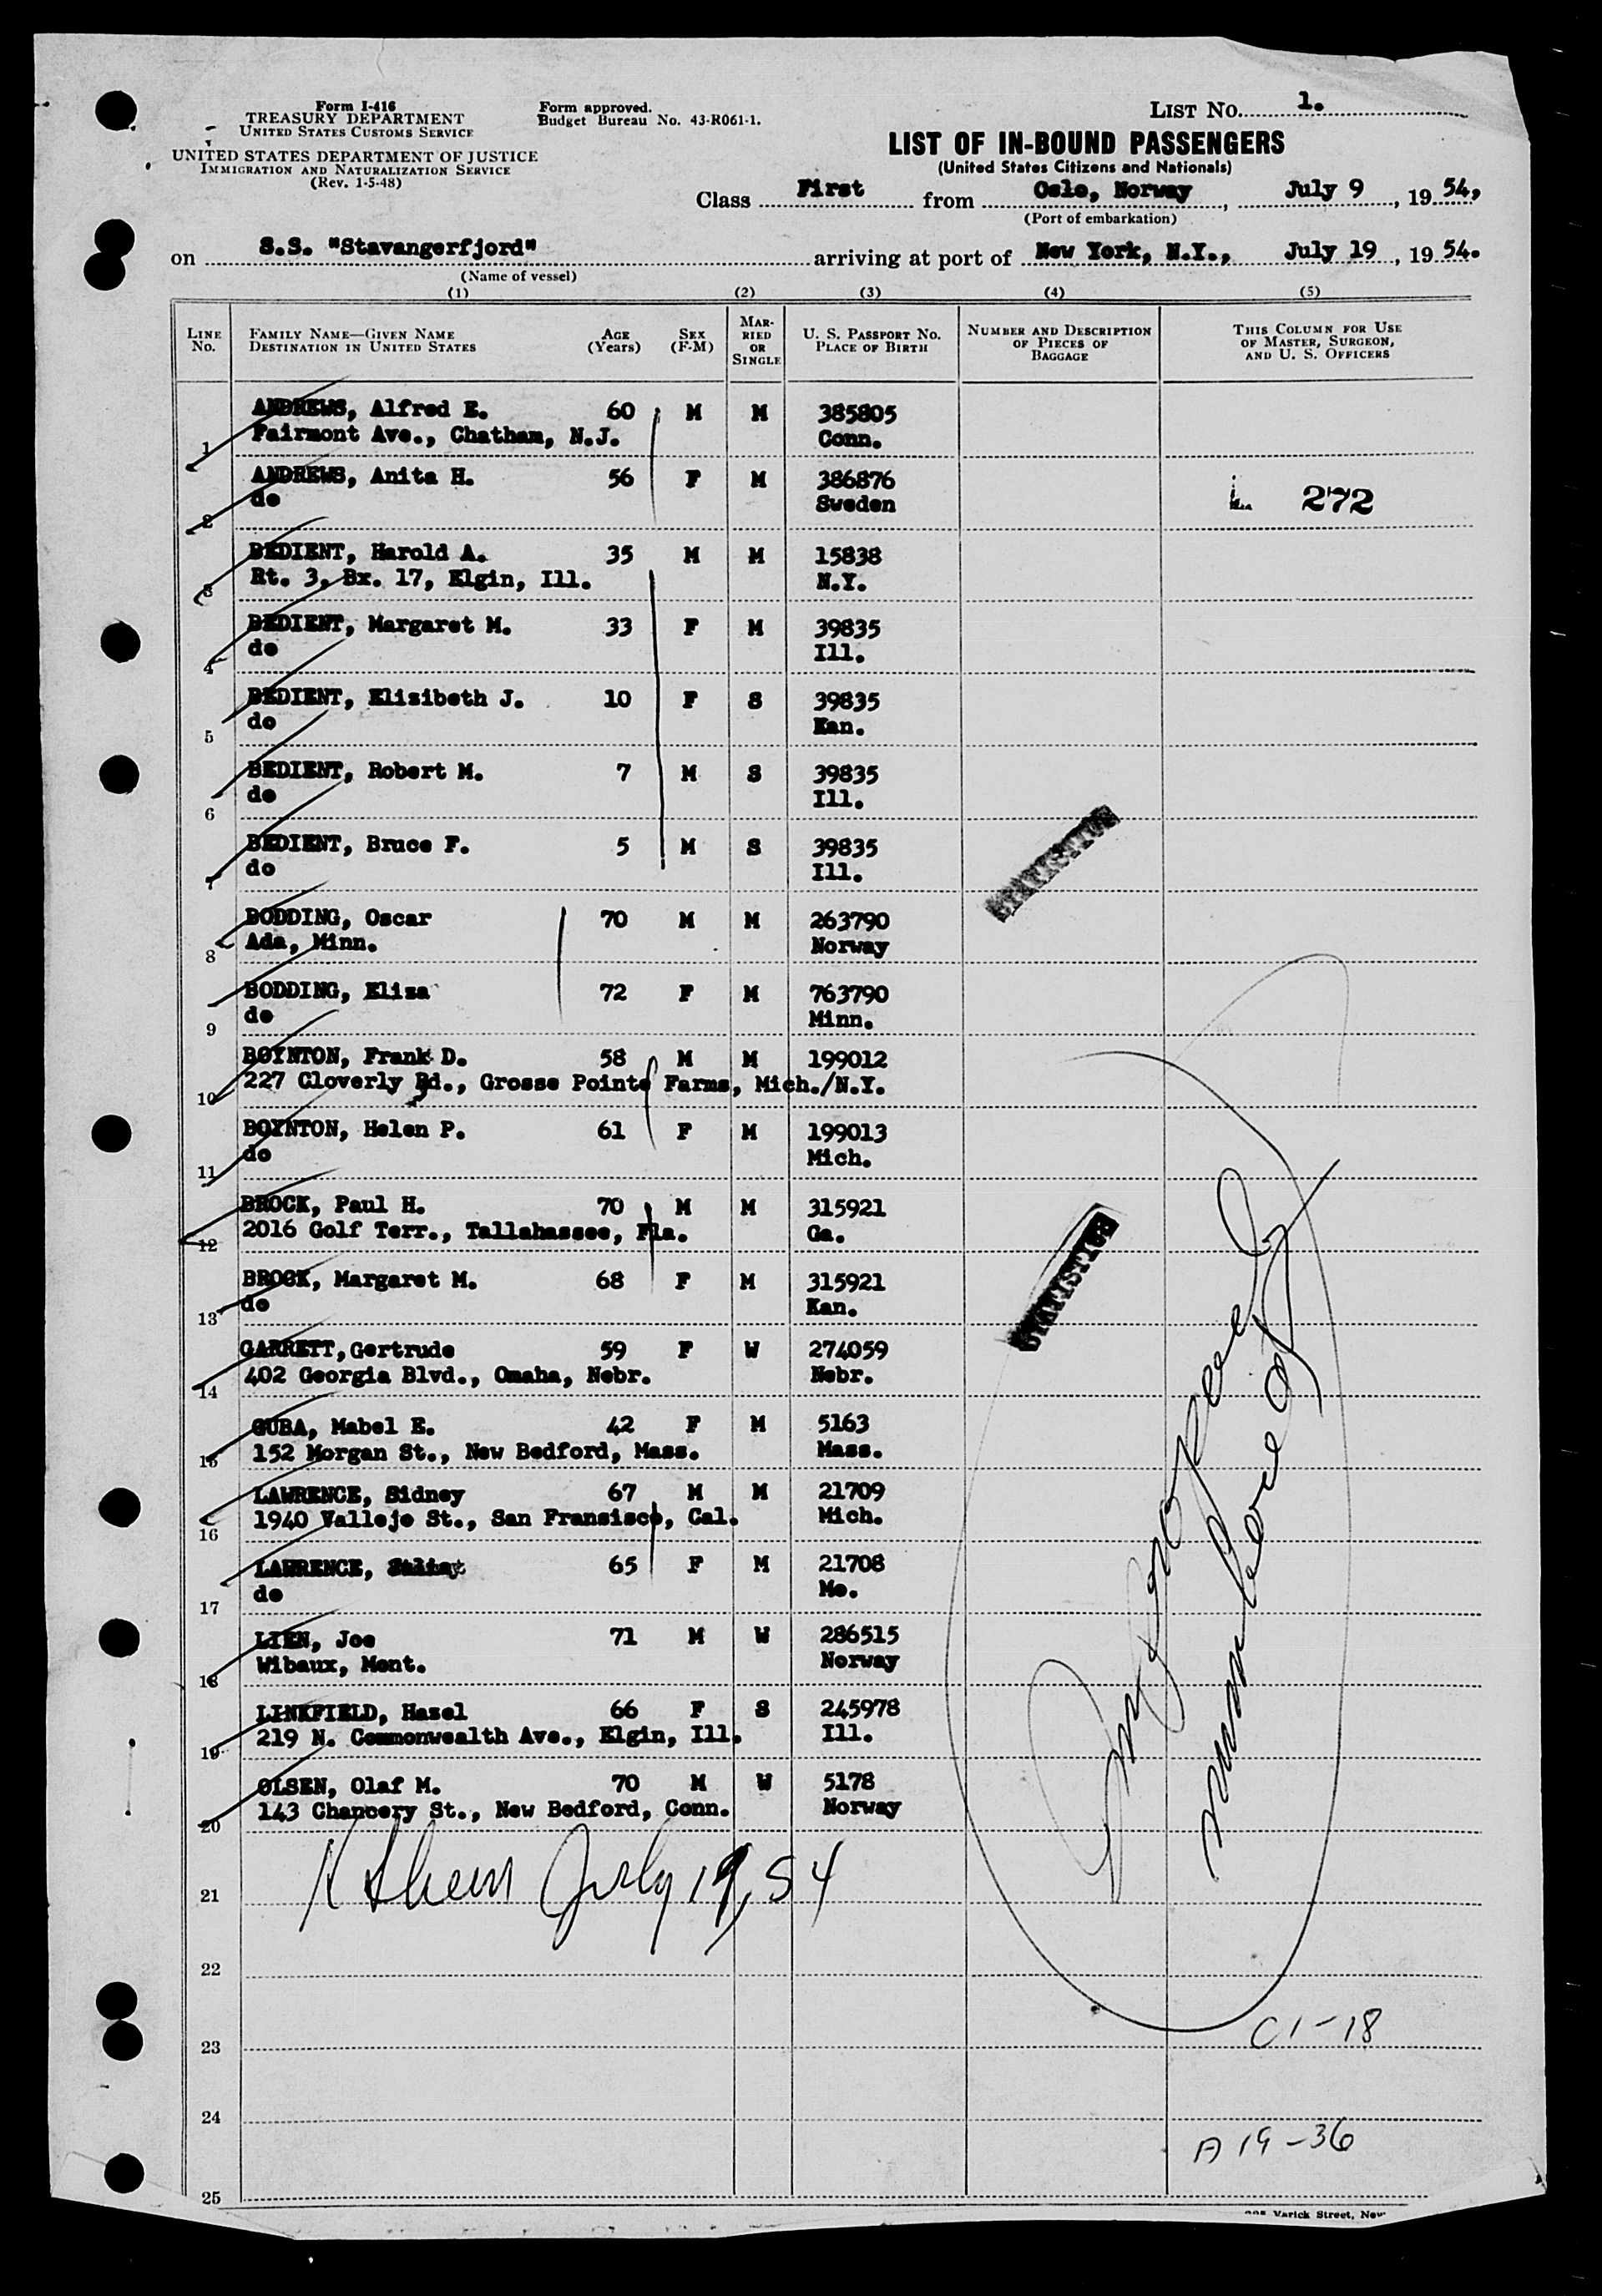 Form I-416
TREASURY DEPARTMENT
UNITED STATES CUSTOMS SERVICE
UNITED STATES DEPARTMENT OF JUSTICE
IMMIGRATION AND NATURALIZATION SERVICE
(Rev. 1-5-48)
Form approved.
Budget Bureau No. 43-R061-1.
LIST No. 1.
LIST OF IN-BOUND PASSENGERS
(United States Citizens and Nationals)
Class First from Oslo, Norway, July 9, 19 54,
(Port of embarkation)
on S.S. "Stavangerfjord" arriving at port of New York, N.Y., July 19, 19 54.
(Name of vessel)
(1) (2) (3) (4) (5)
LINE No. FAMILY NAME—GIVEN NAME DESTINATION IN UNITED STATES AGE (Years) SEX (F-M) MARRIED OR SINGLE U. S. PASSPORT No. PLACE OF BIRTH NUMBER AND DESCRIPTION OF PIECES OF BAGGAGE THIS COLUMN FOR USE OF MASTER, SURGEON, AND U. S. OFFICERS
ANDREWS, Alfred E. 60 M M 385805
1 Fairmont Ave., Chatham, N.J. Conn.
ANDREWS, Anita H. 56 F M 386876
2 do Sweden 272
BEDIENT, Harold A. 35 M M 15838
3 Rt. 3, Bx. 17, Elgin, Ill. N.Y.
BEDIENT, Margaret M. 33 F M 39835
4 do Ill.
BEDIENT, Elisibeth J. 10 F S 39835
5 do Kan.
BEDIENT, Robert M. 7 M S 39835
6 do Ill.
BEDIENT, Bruce F. 5 M S 39835
7 do Ill.
BODDING, Oscar 70 M M 263790
8 Ada, Minn. Norway
BODDING, Eliza 72 F M 763790
9 do Minn.
BOYNTON, Frank D. 58 M M 199012
10 227 Cloverly Rd., Grosse Pointe Farms, Mich./N.Y.
BOYNTON, Helen P. 61 F M 199013
11 do Mich.
BROCK, Paul H. 70 M M 315921
12 2016 Golf Terr., Tallahassee, Fla. Ga.
BROCK, Margaret M. 68 F M 315921
13 do Kan.
GARRETT, Gertrude 59 F W 274059
14 402 Georgia Blvd., Omaha, Nebr. Nebr.
GUBA, Mabel E. 42 F M 5163
15 152 Morgan St., New Bedford, Mass. Mass.
LAWRENCE, Sidney 67 M M 21709
16 1940 Vallejo St., San Fransisco, Cal. Mich.
LAWRENCE, 65 F M 21708
17 do Mo.
LIEN, Joe 71 M W 286515
18 Wibaux, Mont. Norway
LINKFIELD, Hazel 66 F S 245978
19 219 N. Commonwealth Ave., Elgin, Ill. Ill.
OLSEN, Olaf M. 70 M W 5178
20 143 Chancery St., New Bedford, Conn. Norway
July 19, 54
21
22
23
24
25
improperly
numbered
C 1-18
A 19-36
Varick Street, New